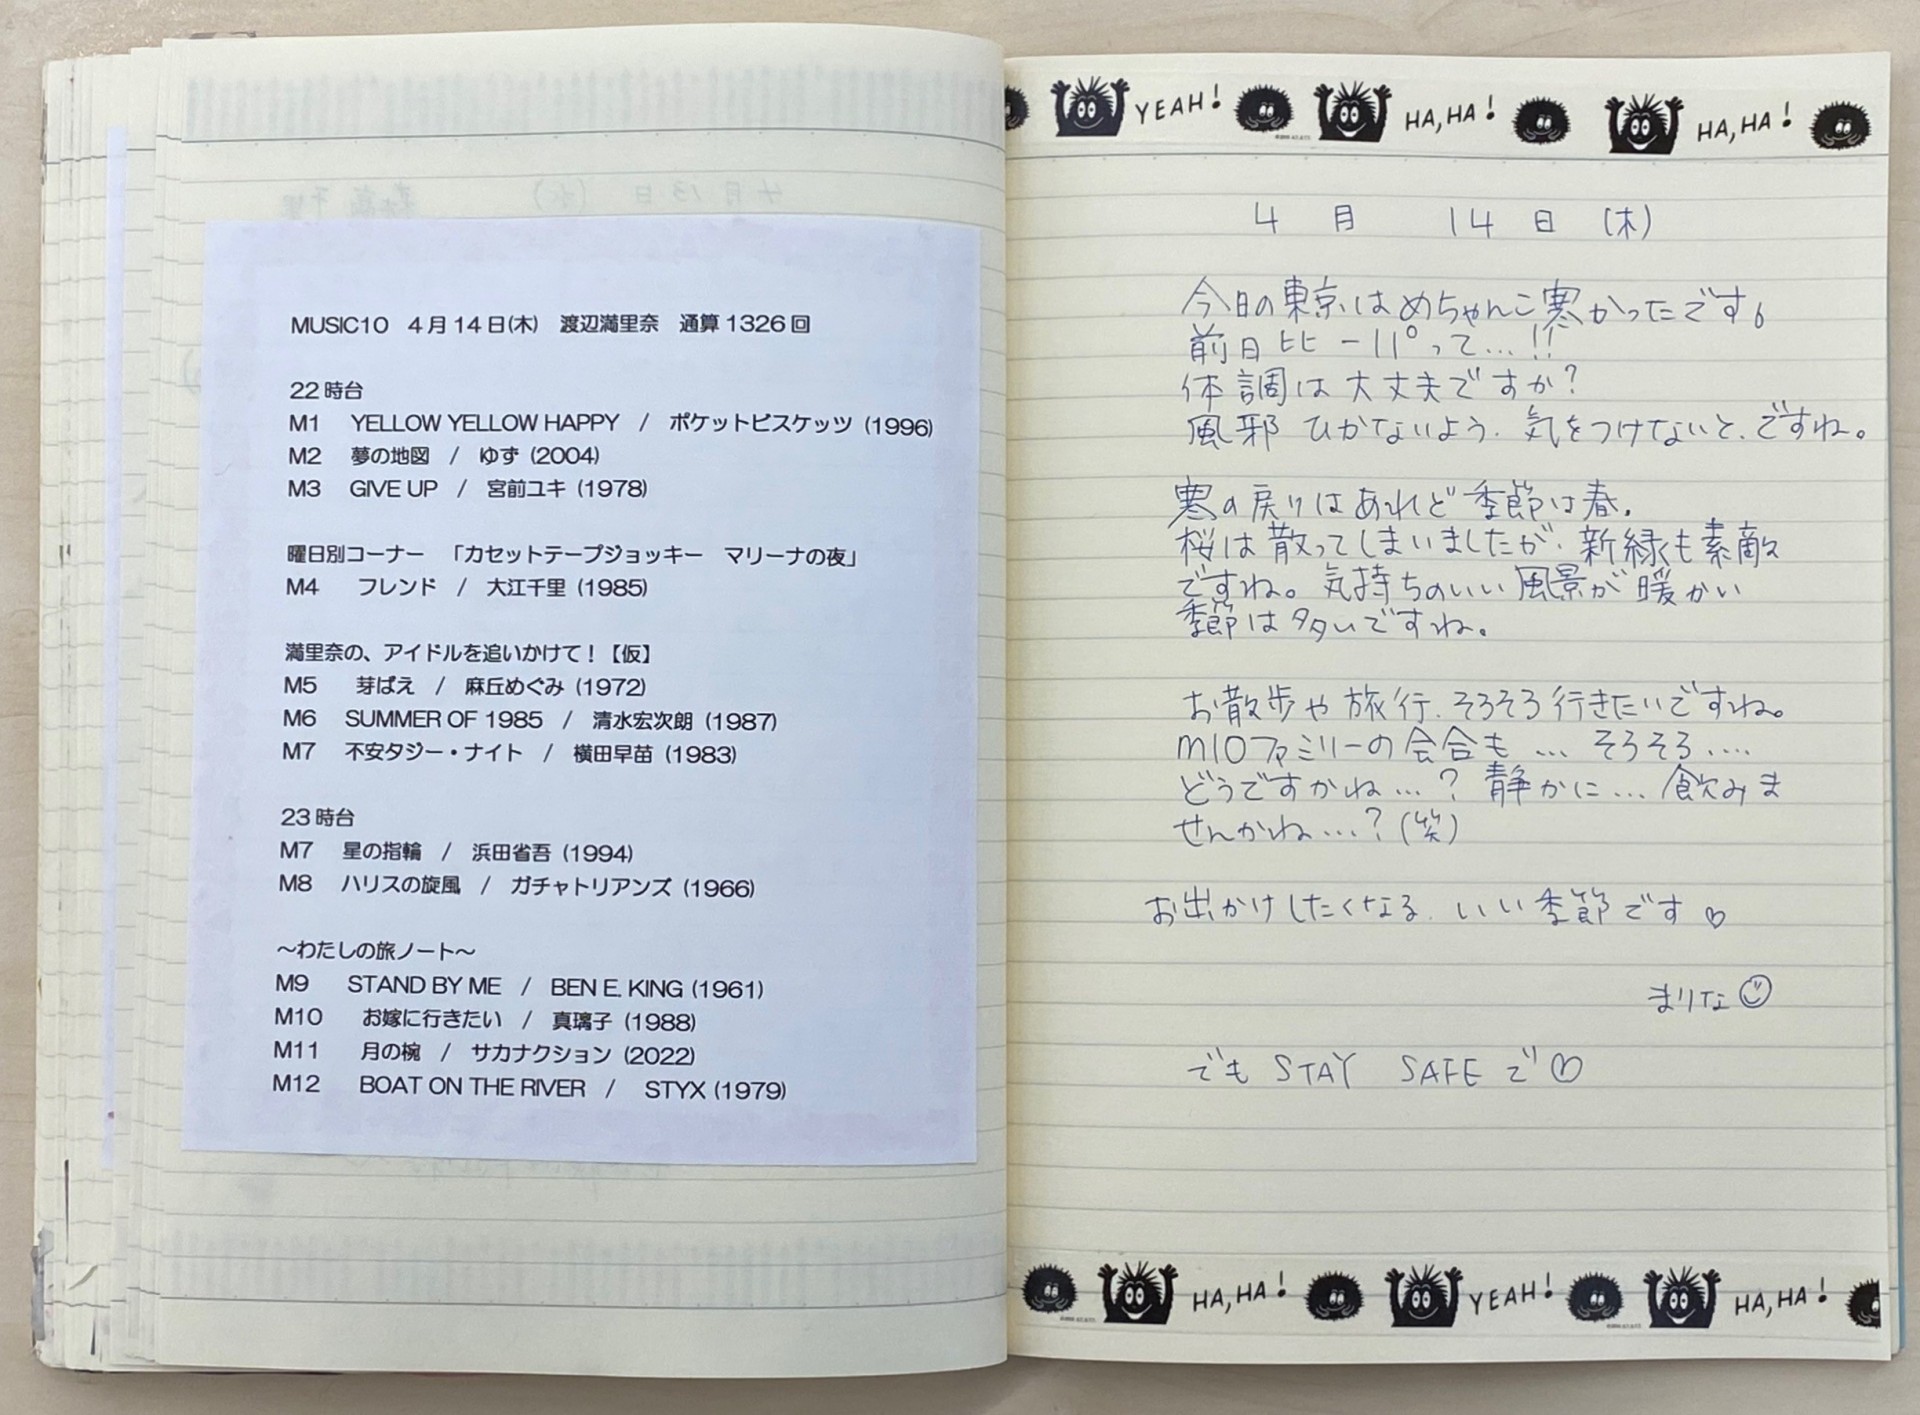 MUSIC10　4月14日(木)　渡辺満里奈　通算1326回
22時台
M1　YELLOW YELLOW HAPPY　/　ポケットビスケッツ (1996)
M2　夢の地図　/　ゆず (2004)
M3　GIVE UP　/　宮前ユキ (1978)
曜日別コーナー　「カセットテープジョッキー　マリーナの夜」
M4　フレンド　/　大江千里 (1985)
満里奈の、アイドルを追いかけて！【仮】
M5　芽ばえ　/　麻丘めぐみ (1972)
M6　SUMMER OF 1985　/　清水宏次朗 (1987)
M7　不安タジー・ナイト　/　横田早苗 (1983)
23時台
M7　星の指輪　/　浜田省吾 (1994)
M8　ハリスの旋風　/　ガチャトリアンズ (1966)
～わたしの旅ノート～
M9　STAND BY ME　/　BEN E. KING (1961)
M10　お嫁に行きたい　/　真璃子 (1988)
M11　月の椀　/　サカナクション (2022)
M12　BOAT ON THE RIVER　/　STYX (1979)
YEAH! HA, HA! HA, HA!
4月　14日　(木)
今日の東京はめちゃんこ寒かったです。
前日比 -11°って…!!
体調は大丈夫ですか?
風邪ひかないよう、気をつけないと、ですね。
寒の戻りはあれど季節は春。
桜は散ってしまいましたが、新緑も素敵
ですね。気持ちのいい風景が暖かい
季節は多いですね。
お散歩や旅行、そろそろ行きたいですね。
m10ファミリーの会合も…そろそろ….
どうですかね…? 静かに…飲みま
せんかね…?(笑)
お出かけしたくなる、いい季節です♡
まりな☺
でも STAY SAFE で♡
HA, HA! YEAH! HA, HA!